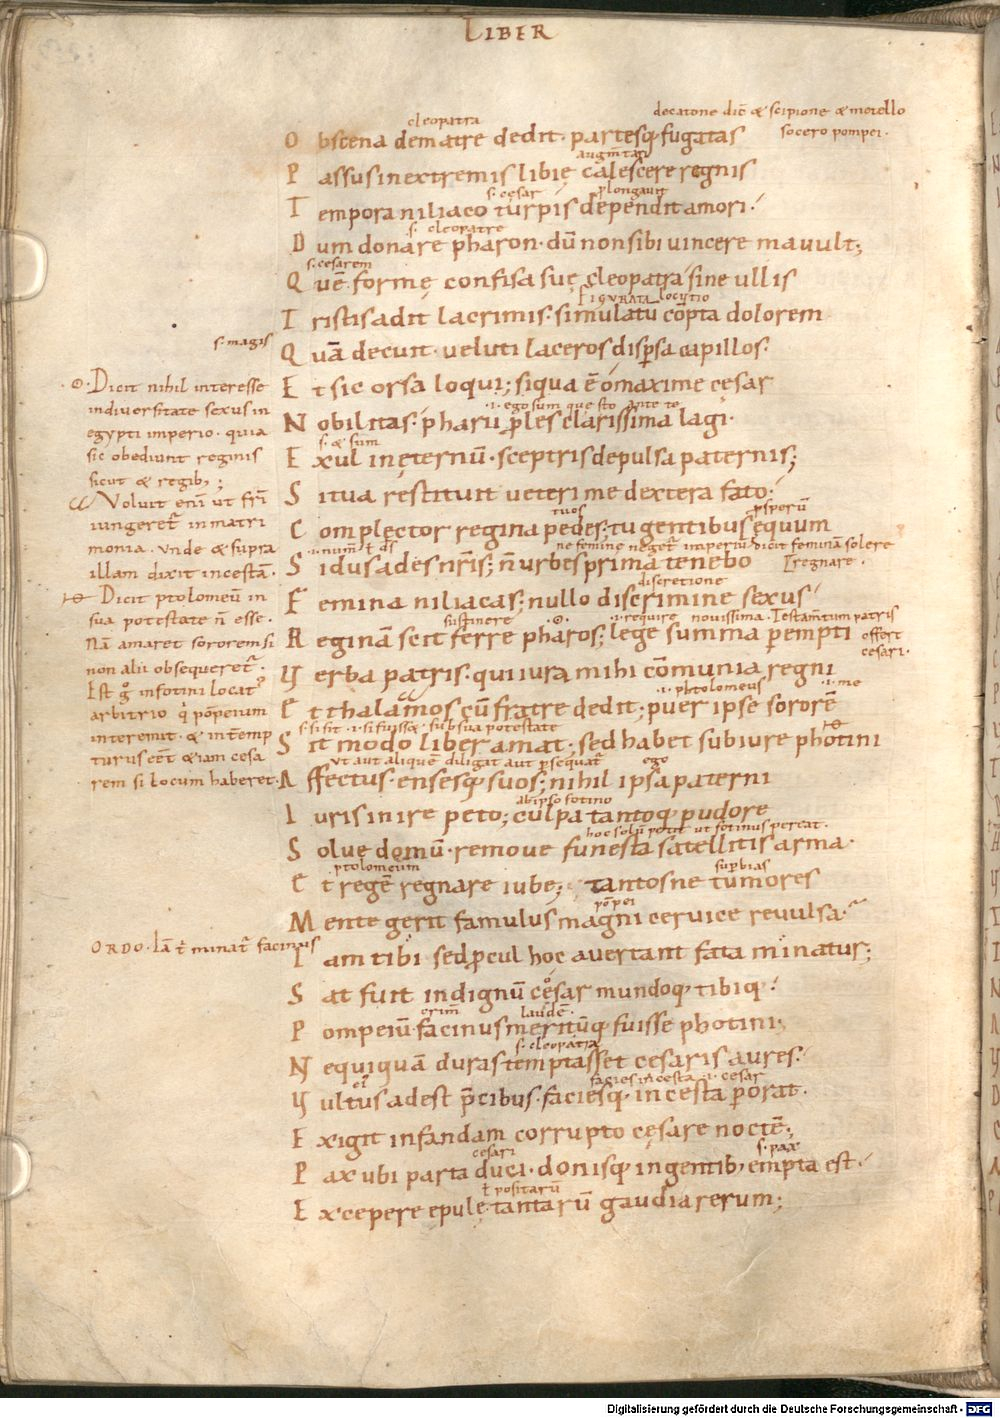 LIBER
decatone dic̄ & scipione & metello
socero pompei.
cleopatra
O bscena dematre dedit. partesq; fugatas
augm̄tari
P assus inextremis libię calescere regnis
s. cesar plongauit
T empora niliaco turpis dependit amori.
s. cleopatre
D um donare pharon. dū non sibi uincere mauult;
s. cesarem
Q uē formę confisa suę cleopatra sine ullis
FIGURATA locutio
T ristis adit lacrimis. simulatū cōpta dolorem
s. magis
Q uā decuit. ueluti laceros dispersa capillos.
E t sic orsa loqui; siqua ē o maxime cesar
.i. ego sum que sto ante te
N obilitas. pharii proles clarissima lagi.
s. & sum
E xul in ęternū. sceptris depulsa paternis;
S itua restituit ueteri me dextera fato.
tuos psperū
C omplector regina pedes; tu gentibus equum
.i. num t̄ ds̄ ne femine neget̄ imperiū. dicit feminā solere
S idus ades nr̄is; n̄ urbes prima tenebo
regnare.
discretione
F emina niliacas; nullo discrimine sexus
sustinere .ʘ. .i. require nouissima. Testam̄tum patris
R eginā scit ferre pharos; lege summa perempti
offert
cesari.
V erba patris. qui iura mihi cōmunia regni
.i. phtolomeus .i. me
E t thalamos cū fratre dedit; puer ipse sororē
s. si sit .i. si fuiss& sub sua potestate
S it modo liber amat. sed habet sub iure photini
ut aut alique diligat aut psequat̄ ego
A ffectus. ensesq; suos; nihil ipsa paterni
ab ipso fotino
I uris inire peto; culpa tantoq; pudore
hoc solū petit ut fotinus pereat.
S olue domū. remoue funesta satellitis arma.
ptolomeum supbias
E t regē regnare iube; tantosne tumores
pōpei
M ente gerit famulus magni ceruice reuulsa.
ORDO. Iā t̄ minat̄ facinus
I am tibi sed procul hoc auertant fata minatur;
S at fuit indignū cesar mundoq; tibiq;.
crim̄ laudē.
P ompeiū. facinus meritūq; fuisse photini;
s. cleopatra
N equiquā duras temptasset cesaris aures.
ei facies incesta .i. cesar
V ultus adest p̄cibus. faciesq; incesta perorat.
E xigit infandam corrupto cesare noctē;
cesari s. pax
P ax ubi parta duci. donisq; ingentib; empta est.
t̄ positarū
E xcepere epulę tantarū gaudia rerum;
.ʘ. Dicit nihil interesse
indiuersitate sexus in
egypti imperio. quia
sic obediunt reginis
sicut & regib;;
Voluit enī ut fr̄i
iungeret̄ in matri
monio. Vnde & supra
illam dixit incestā.
Dicit ptolomeū in
sua potestate n̄ esse.
Nā amaret sororem si
non alii obsequeret̄.
Est g̊ in fotini locat'
arbitrio q̇ pōpeium
interemit. & int̄emp
turus eēt &iam cesa
rem si locum haberet.
Digitalisierung gefördert durch die Deutsche Forschungsgemeinschaft - DFG